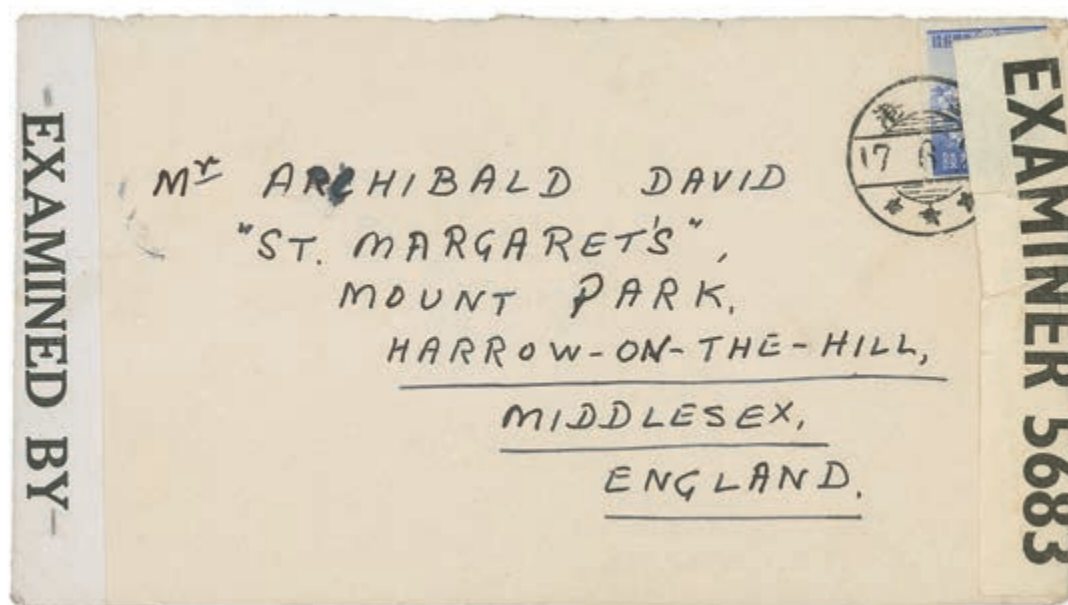 -EXAMINED BY-
Mr ARCHIBALD DAVID
"ST. MARGARET'S",
MOUNT PARK,
HARROW-ON-THE-HILL,
MIDDLESEX,
ENGLAND.
17
EXAMINER 5683